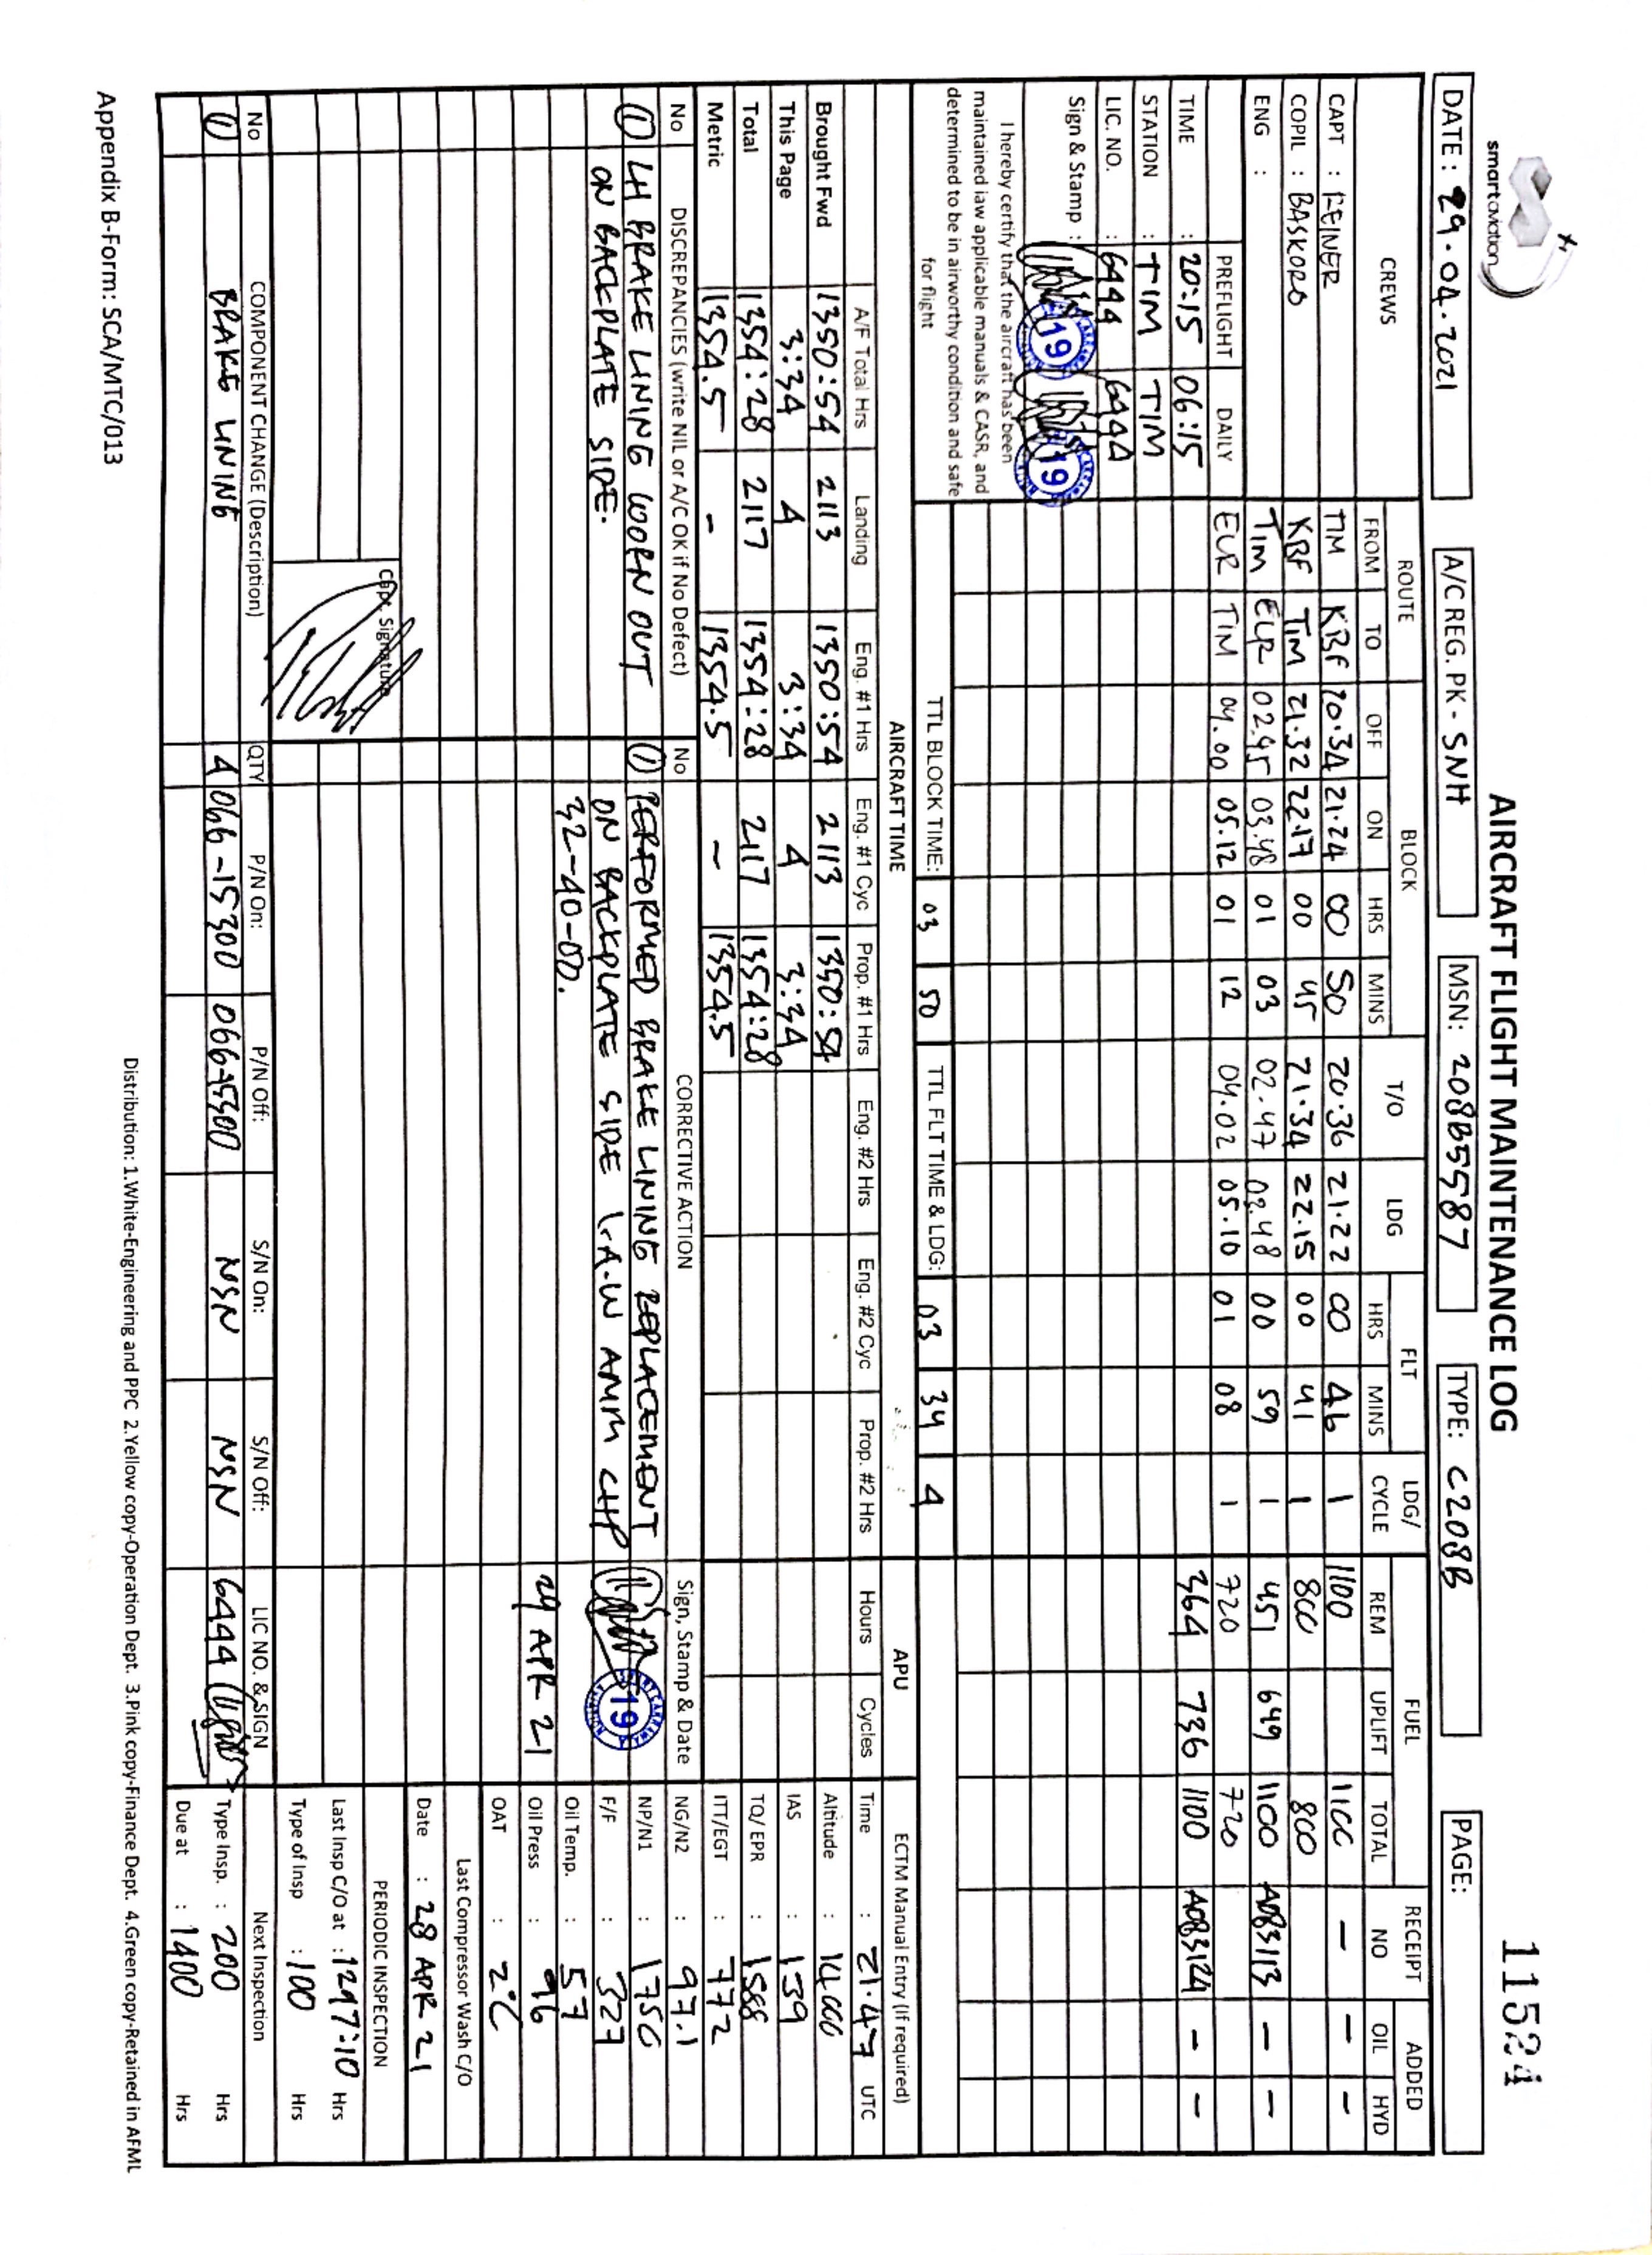 smartaviation
AIRCRAFT FLIGHT MAINTENANCE LOG
11524
DATE : 29.04.2021 A/C REG. PK - SNH MSN: 208B5587 TYPE: C208B PAGE:
CREWS ROUTE BLOCK T/O LDG FLT LDG/ CYCLE FUEL RECEIPT NO ADDED
FROM TO OFF ON HRS MINS HRS MINS REM UPLIFT TOTAL OIL HYD
CAPT : REINER TIM KBF 20.34 21.24 00 50 20.36 21.22 00 46 1 1100 1100 - - -
COPIL : BASKORO KBF TIM 21.32 22.17 00 45 21.34 22.15 00 41 1 800 800
ENG : TIM EWR 02.45 03.48 01 03 02.47 03.48 00 59 1 451 649 1100 A083113 - -
PREFLIGHT DAILY EWR TIM 04.00 05.12 01 12 04.02 05.10 01 08 1 720 720
TIME : 20:15 06:15 364 736 1100 A083124 - -
STATION : TIM TIM
LIC. NO. : 6444 6444
Sign & Stamp : 19 19
I hereby certify that the aircraft has been
maintained iaw applicable manuals & CASR, and
determined to be in airworthy condition and safe
for flight
TTL BLOCK TIME: 03 50 TTL FLT TIME & LDG: 03 34 4
AIRCRAFT TIME APU ECTM Manual Entry (If required)
A/F Total Hrs Landing Eng. #1 Hrs Eng. #1 Cyc Prop. #1 Hrs Eng. #2 Hrs Eng. #2 Cyc Prop. #2 Hrs Hours Cycles Time : 21.47 UTC
Brought Fwd 1350:54 2113 1350:54 2113 1350:54 Altitude : 14000
This Page 3:34 4 3:34 4 3:34 IAS : 139
Total 1354:28 2117 1354:28 2117 1354:28 TQ/ EPR : 1588
Metric 1354.5 - 1354.5 - 1354.5 ITT/EGT : 772
No DISCREPANCIES (write NIL or A/C OK if No Defect) No CORRECTIVE ACTION Sign, Stamp & Date NG/N2 : 97.1
1 LH BRAKE LINING WORN OUT 1 PERFORMED BRAKE LINING REPLACEMENT 19 NP/N1 : 1750
ON BACKPLATE SIDE. ON BACKPLATE SIDE I.A.W AMM CHP F/F : 327
32-40-00. Oil Temp. : 57
29 APR 21 Oil Press : 96
OAT : 2°C
Last Compressor Wash C/O
Date : 28 APR 21
Capt. Signature PERIODIC INSPECTION
Last Insp C/O at : 1297:10 Hrs
Type of Insp : 100 Hrs
No COMPONENT CHANGE (Description) QTY P/N On: P/N Off: S/N On: S/N Off: LIC NO. & SIGN Next Inspection
1 BRAKE LINING 4 066-15300 066-15300 NSN NSN 6444 Type Insp. : 200 Hrs
Due at : 1400 Hrs
Distribution: 1.White-Engineering and PPC 2.Yellow copy-Operation Dept. 3.Pink copy-Finance Dept. 4.Green copy-Retained in AFML
Appendix B-Form: SCA/MTC/013